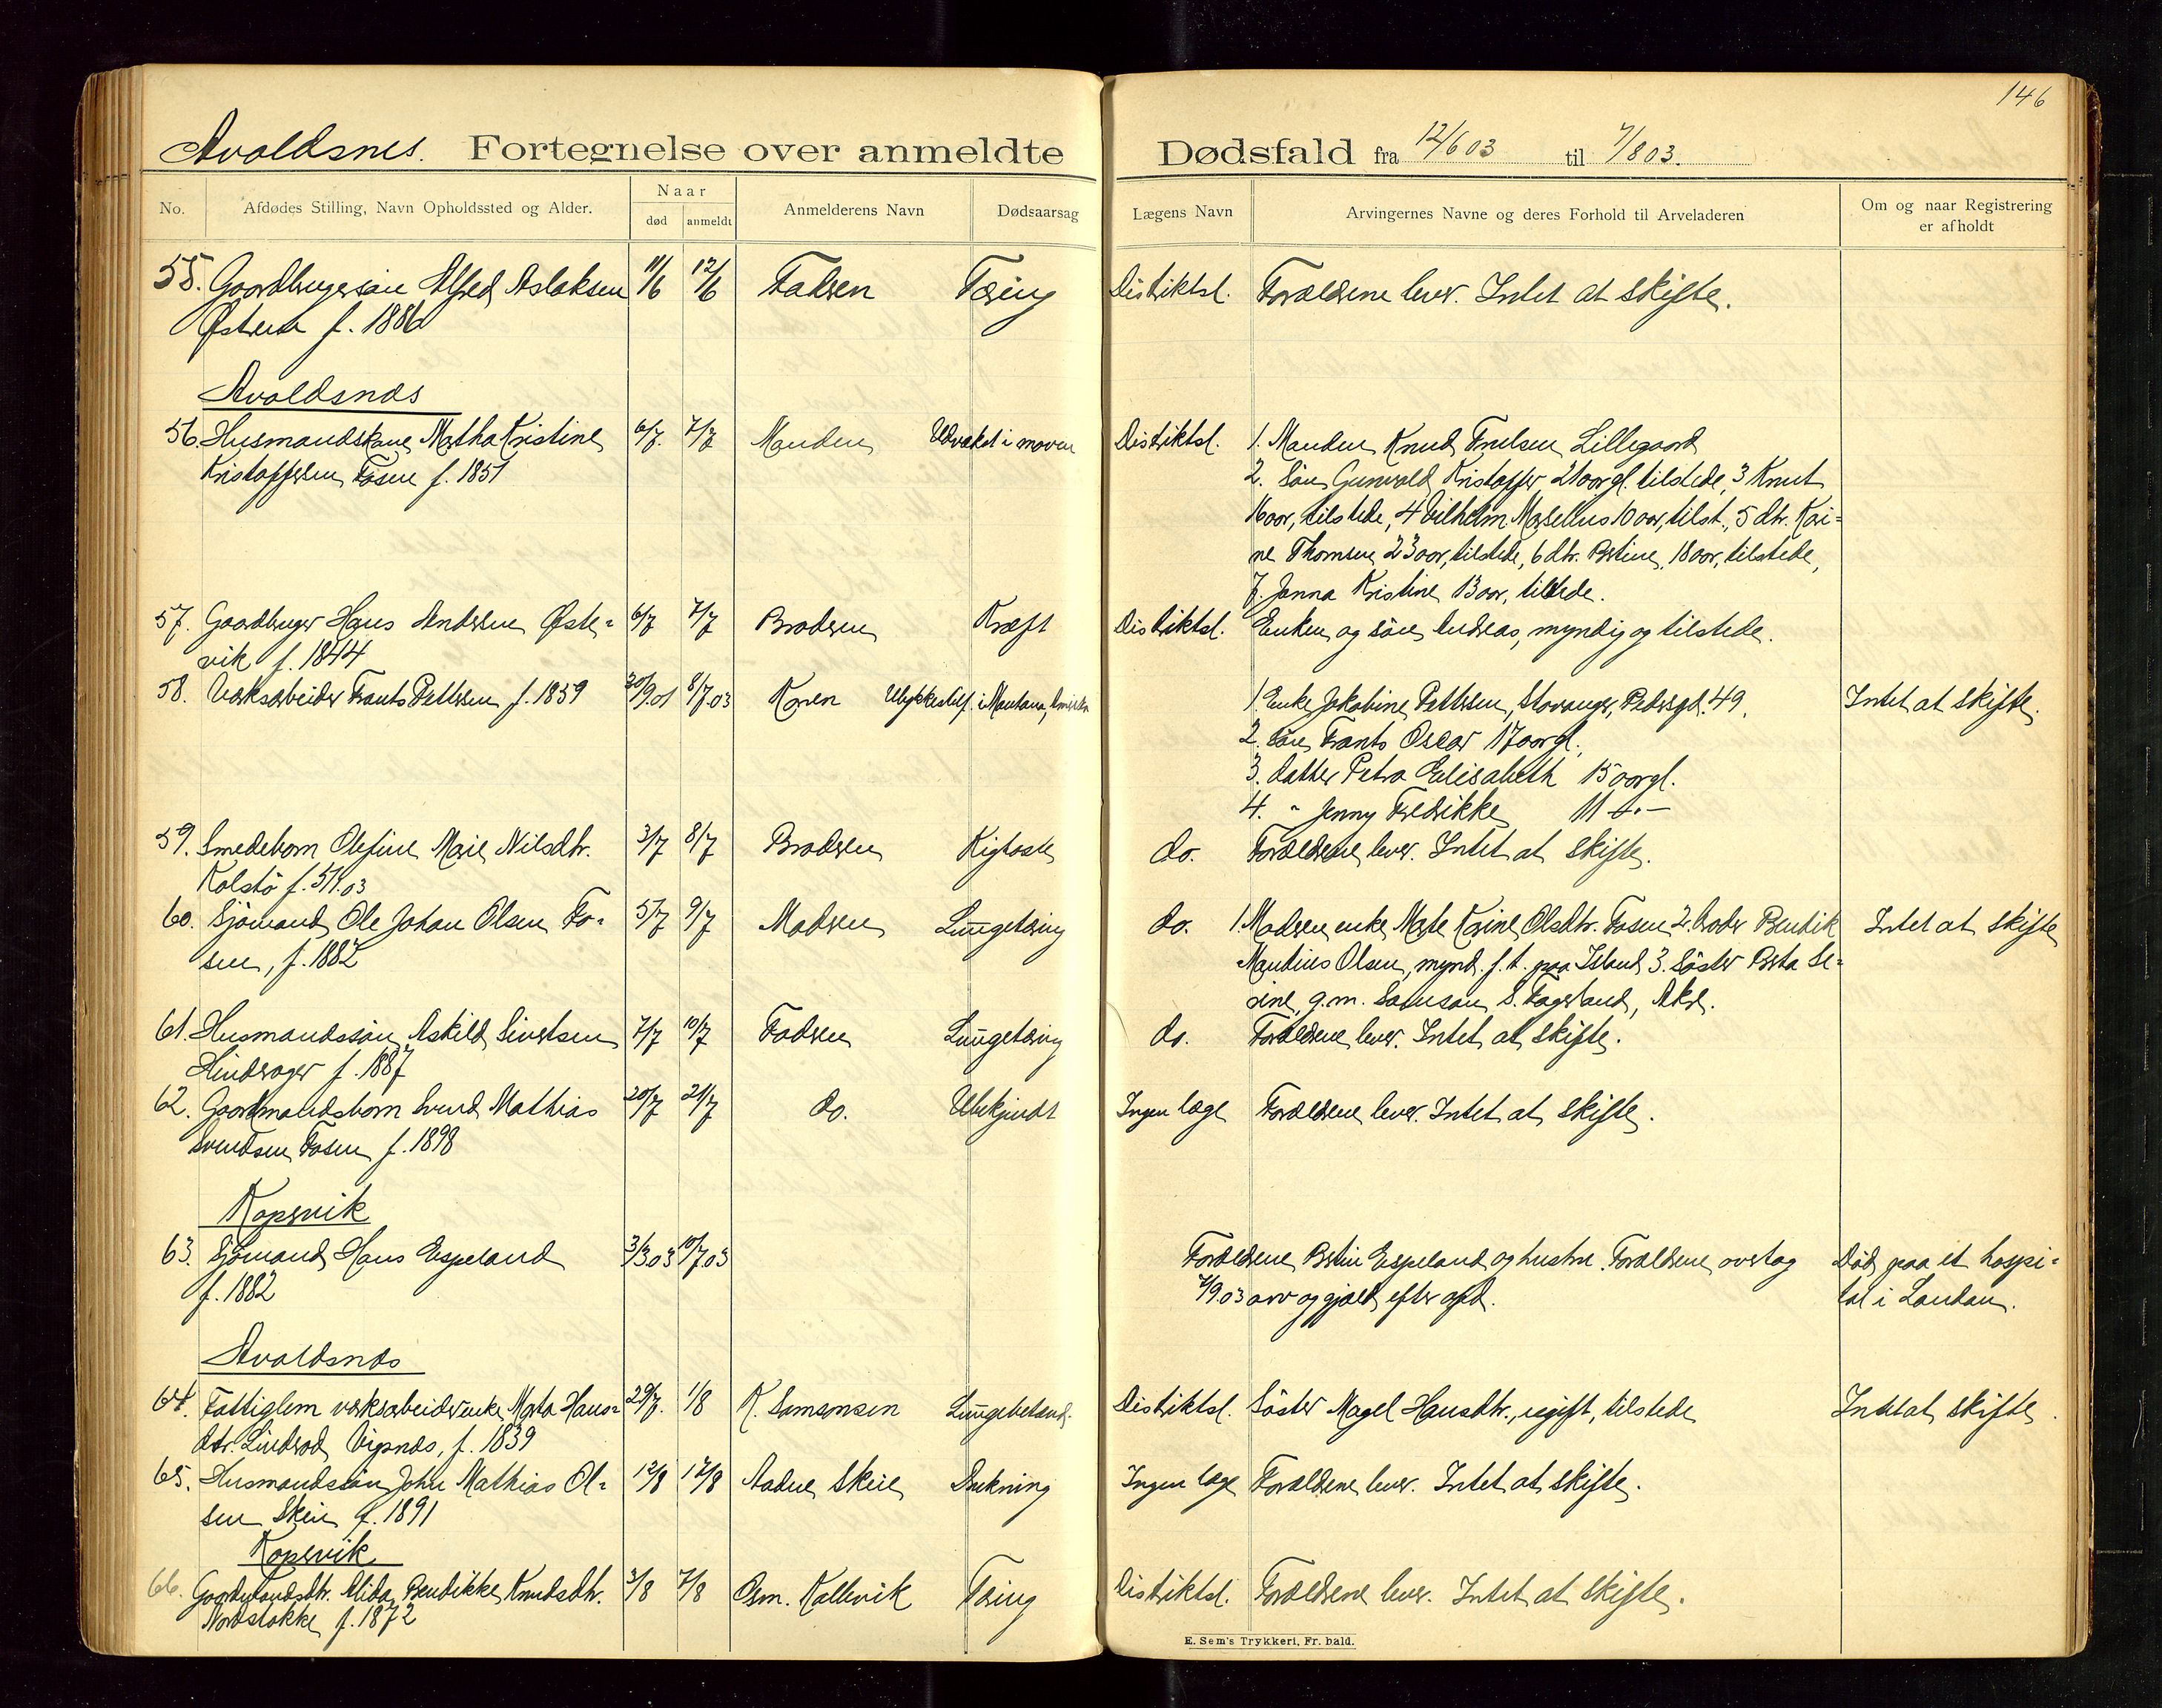 146
Avaldsnes. Fortegnelse over anmeldte Dødsfald fra 12/6 03 til 7/8 03.
No. Afdødes Stilling, Navn Opholdssted og Alder. Naar død anmeldt Anmelderens Navn Dødsaarsag Lægens Navn Arvingernes Navne og deres Forhold til Arveladeren Om og naar Registrering er afholdt
55. Gaardbrugersøn Alfred Aslaksen 11/6 12/6 Faderen Tæring Distriktsl. Forældrene lever. Intet at skifte.
f. 1886
Avaldsnæs
56. Husmandskone Martha Kristine 6/7. 7/7 Manden i maven Distriktsl. 1. Manden Knud Lillegaard
Kristoffersen Fosen f. 1851 2. Søn Gunvald Kristoffer 21 aar gl. tilstede, 3 Knut
16 aar, tilstede, 4 Vilhelm Marselius 10 aar, tilst., 5 dtr. Kari=
ne Thomsen 23 aar, tilstede, 6 dtr. Bertine, 18 aar, tilstede,
7. Janna Kristine 13 aar, tilstede.
57. Gaardbruger Hans Andersen Øste= 6/7 7/7 Broderen Kræft Distriktsl. Enken og søn Andreas, myndig og tilstede.
vik f. 1844
58. Værksarbeider Frants Pettersen f. 1859 20/9.01 8/7.03 Konen Ulykkestilf. i Montana, Amerika 1. Enke Jakobine Pettersen, Stavanger, Pedersgd. 49. Intet at skifte.
2. Søn Frants Oscar 17 aar gl.,
3. datter Petra Elisabeth 15 aar gl.
4. " Jenny Fredrikke 11 -"-
59. Smedebarn Olefine Marie Nilsdtr. 3/7 8/7 Broderen Kighoste do. Forældrene lever. Intet at skifte.
Kolstø f. 5/1.03
60. Sjømand Ole Johan Olsen Fo= 5/7 9/7 Moderen Lungetæring do. 1. Moderen enke Marte Karine Olsdtr. Fosen 2. broder Bendik Intet at skifte
sen, f. 1882 Mandius Olsen, mynd. f. t. paa Island 3. Søster Berta Se=
rine, g. m. Samson S. Fagerland, Akre.
61. Husmandssøn Askild Sivertsen 7/7 10/7 Faderen Lungetæring do. Forældrene lever. Intet at skifte.
Hinderager f. 1887
62. Gaardmandsbarn Svend Mathias 20/7 21/7 do. Ubekjendt Ingen læge Forældrene lever. Intet at skifte.
Svendsen Fosen f. 1898
Kopervik
63. Sjømand Hans Espeland 3/3.03 10/7.03 Forældrene Bertin Espeland og hustru. Forældrene overtog Død paa et hospi=
f. 1882 7/9.03 arv og gjæld efter afd. tal i London.
Avaldsnæs
64. Fattiglem værksarbeiderenke Marta Hans= 29/7. 1/8 K. Samsonsen Lungebetænd. Distriktsl. Søster Magel Hansdtr., ugift, tilstede Intet at skifte.
dtr. Linderød Vigsnæs, f. 1839
65. Husmandssøn John Mathias Ol= 12/8 17/8 Aadne Skeie Drukning Ingen læge Forældrene lever. Intet at skifte.
sen Skeie f. 1891
Kopervik
66. Gaardmandsdtr. Alida Bendikke Knudsdtr. 3/8 7/8 Osm. Kallevik Tæring Distriktsl. Forældrene lever. Intet at skifte.
Nordstokke f. 1872
E. Sem's Trykkeri, Fr. hald.